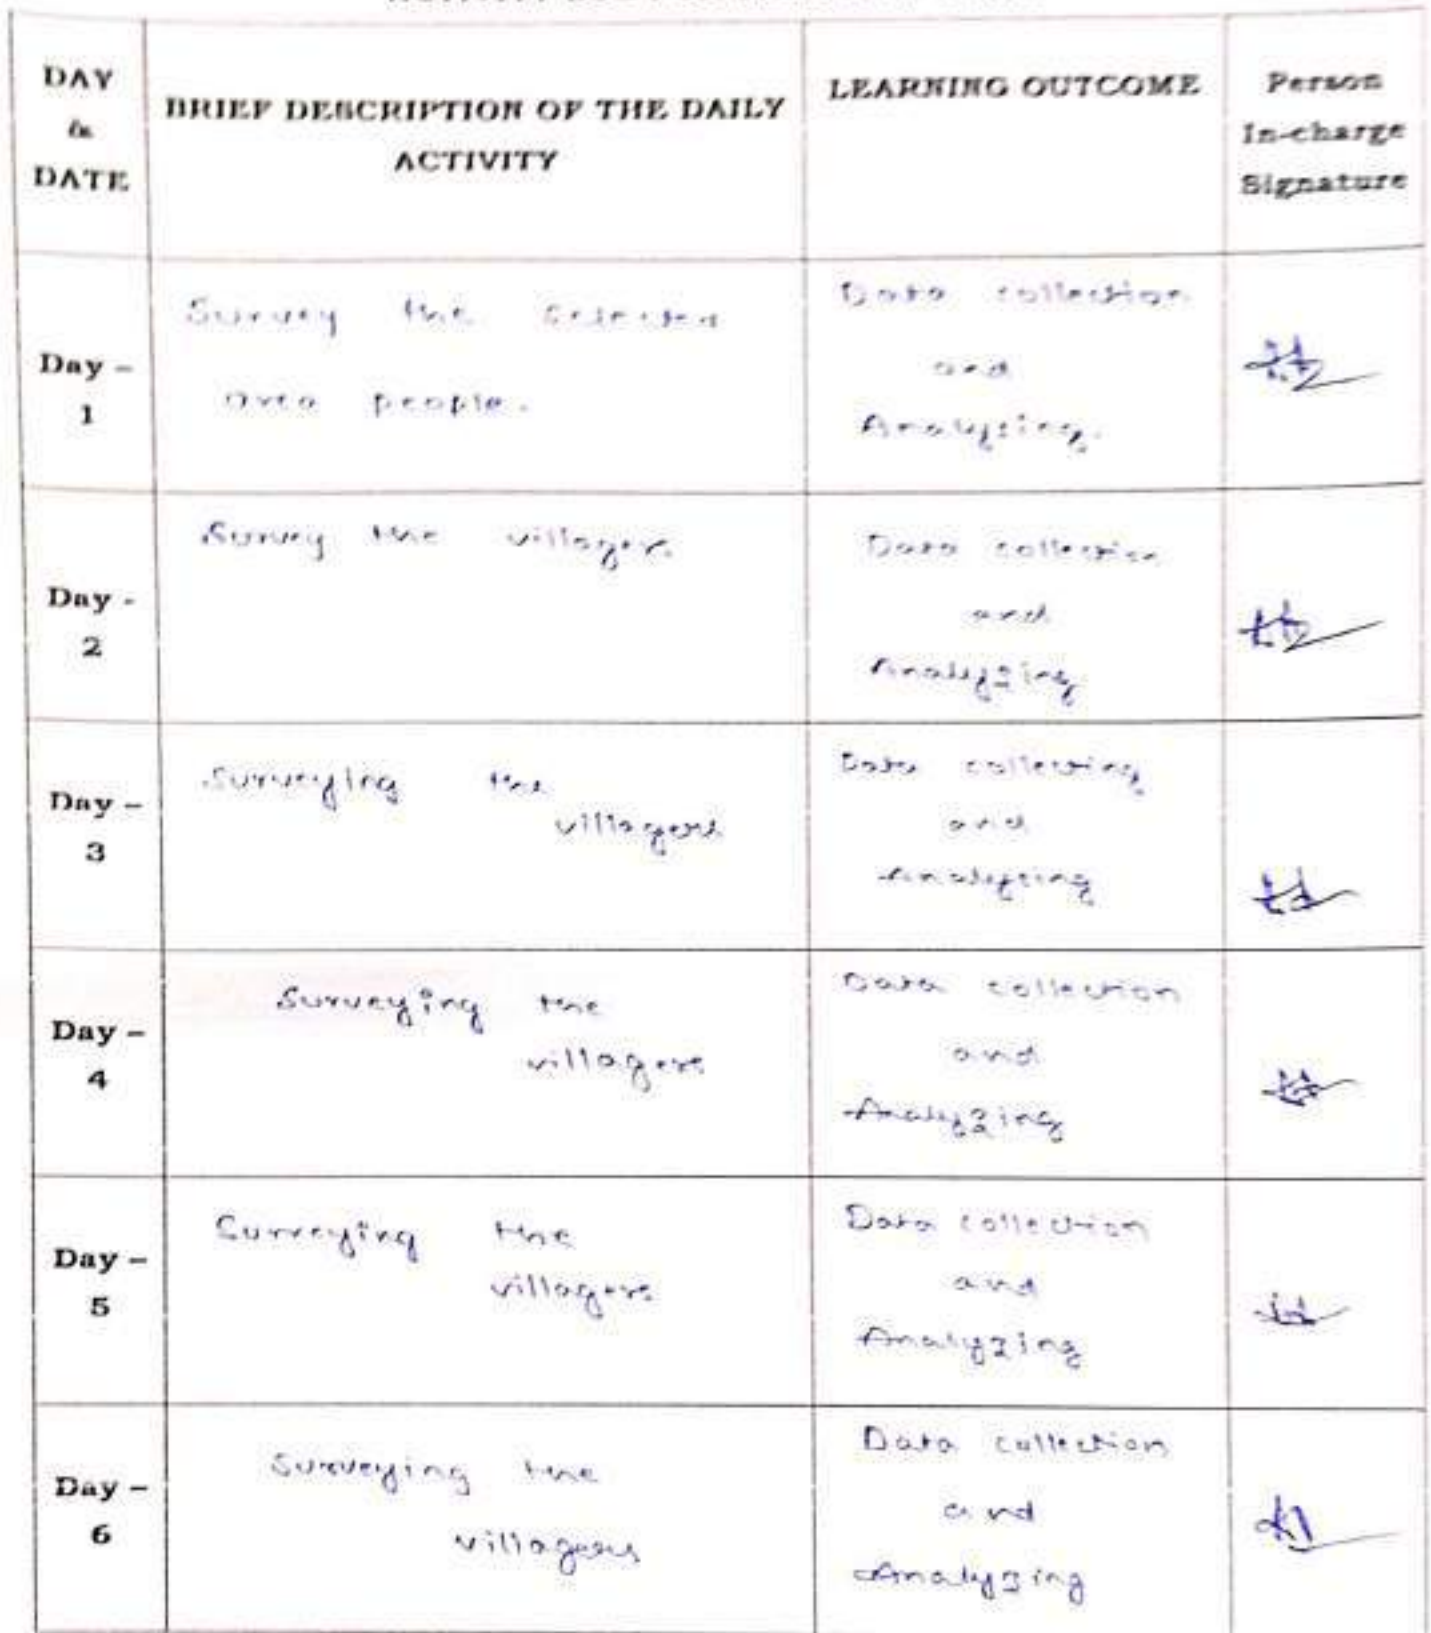 DAY
&
DATE
BRIEF DESCRIPTION OF THE DAILY
ACTIVITY
LEARNING OUTCOME
Person
In-charge
Signature
Day –
1
Survey the selected
area people.
Data collection
and
Analyzing.
Day -
2
Survey the villagers
Data collection
and
Analyzing
Day –
3
Surveying the
villagers
Data collecting
and
Analyzing
Day –
4
Surveying the
villagers
Data collection
and
Analyzing
Day –
5
Surveying the
villagers
Data collection
and
Analyzing
Day –
6
Surveying the
villagers
Data collection
and
Analyzing